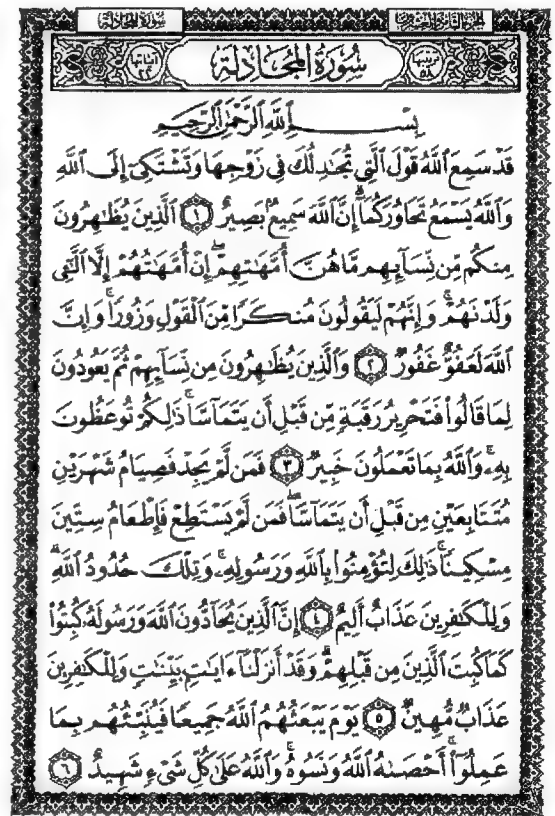 الجزء الثامن والعشرون
سورة المجادلة
ترتيبها ٥٨
سُورَةُ المُجَادلَة
آياتها ٢٢
بِسْمِ ٱللَّهِ ٱلرَّحْمَٰنِ ٱلرَّحِيمِ
قَدْ سَمِعَ ٱللَّهُ قَوْلَ ٱلَّتِي تُجَٰدِلُكَ فِي زَوْجِهَا وَتَشْتَكِيٓ إِلَى ٱللَّهِ
وَٱللَّهُ يَسْمَعُ تَحَاوُرَكُمَآۚ إِنَّ ٱللَّهَ سَمِيعٌۢ بَصِيرٌ ١ ٱلَّذِينَ يُظَٰهِرُونَ
مِنكُم مِّن نِّسَآئِهِم مَّا هُنَّ أُمَّهَٰتِهِمْۖ إِنْ أُمَّهَٰتُهُمْ إِلَّا ٱلَّٰٓـِٔي
وَلَدْنَهُمْۚ وَإِنَّهُمْ لَيَقُولُونَ مُنكَرًا مِّنَ ٱلْقَوْلِ وَزُورًاۚ وَإِنَّ
ٱللَّهَ لَعَفُوٌّ غَفُورٌ ٢ وَٱلَّذِينَ يُظَٰهِرُونَ مِن نِّسَآئِهِمْ ثُمَّ يَعُودُونَ
لِمَا قَالُوا۟ فَتَحْرِيرُ رَقَبَةٍ مِّن قَبْلِ أَن يَتَمَآسَّاۚ ذَٰلِكُمْ تُوعَظُونَ
بِهِۦۚ وَٱللَّهُ بِمَا تَعْمَلُونَ خَبِيرٌ ٣ فَمَن لَّمْ يَجِدْ فَصِيَامُ شَهْرَيْنِ
مُتَتَابِعَيْنِ مِن قَبْلِ أَن يَتَمَآسَّاۖ فَمَن لَّمْ يَسْتَطِعْ فَإِطْعَامُ سِتِّينَ
مِسْكِينًاۚ ذَٰلِكَ لِتُؤْمِنُوا۟ بِٱللَّهِ وَرَسُولِهِۦۚ وَتِلْكَ حُدُودُ ٱللَّهِۗ
وَلِلْكَٰفِرِينَ عَذَابٌ أَلِيمٌ ٤ إِنَّ ٱلَّذِينَ يُحَآدُّونَ ٱللَّهَ وَرَسُولَهُۥ كُبِتُوا۟
كَمَا كُبِتَ ٱلَّذِينَ مِن قَبْلِهِمْۚ وَقَدْ أَنزَلْنَآ ءَايَٰتٍۭ بَيِّنَٰتٍۚ وَلِلْكَٰفِرِينَ
عَذَابٌ مُّهِينٌ ٥ يَوْمَ يَبْعَثُهُمُ ٱللَّهُ جَمِيعًا فَيُنَبِّئُهُم بِمَا
عَمِلُوٓا۟ۚ أَحْصَىٰهُ ٱللَّهُ وَنَسُوهُۚ وَٱللَّهُ عَلَىٰ كُلِّ شَيْءٍ شَهِيدٌ ٦